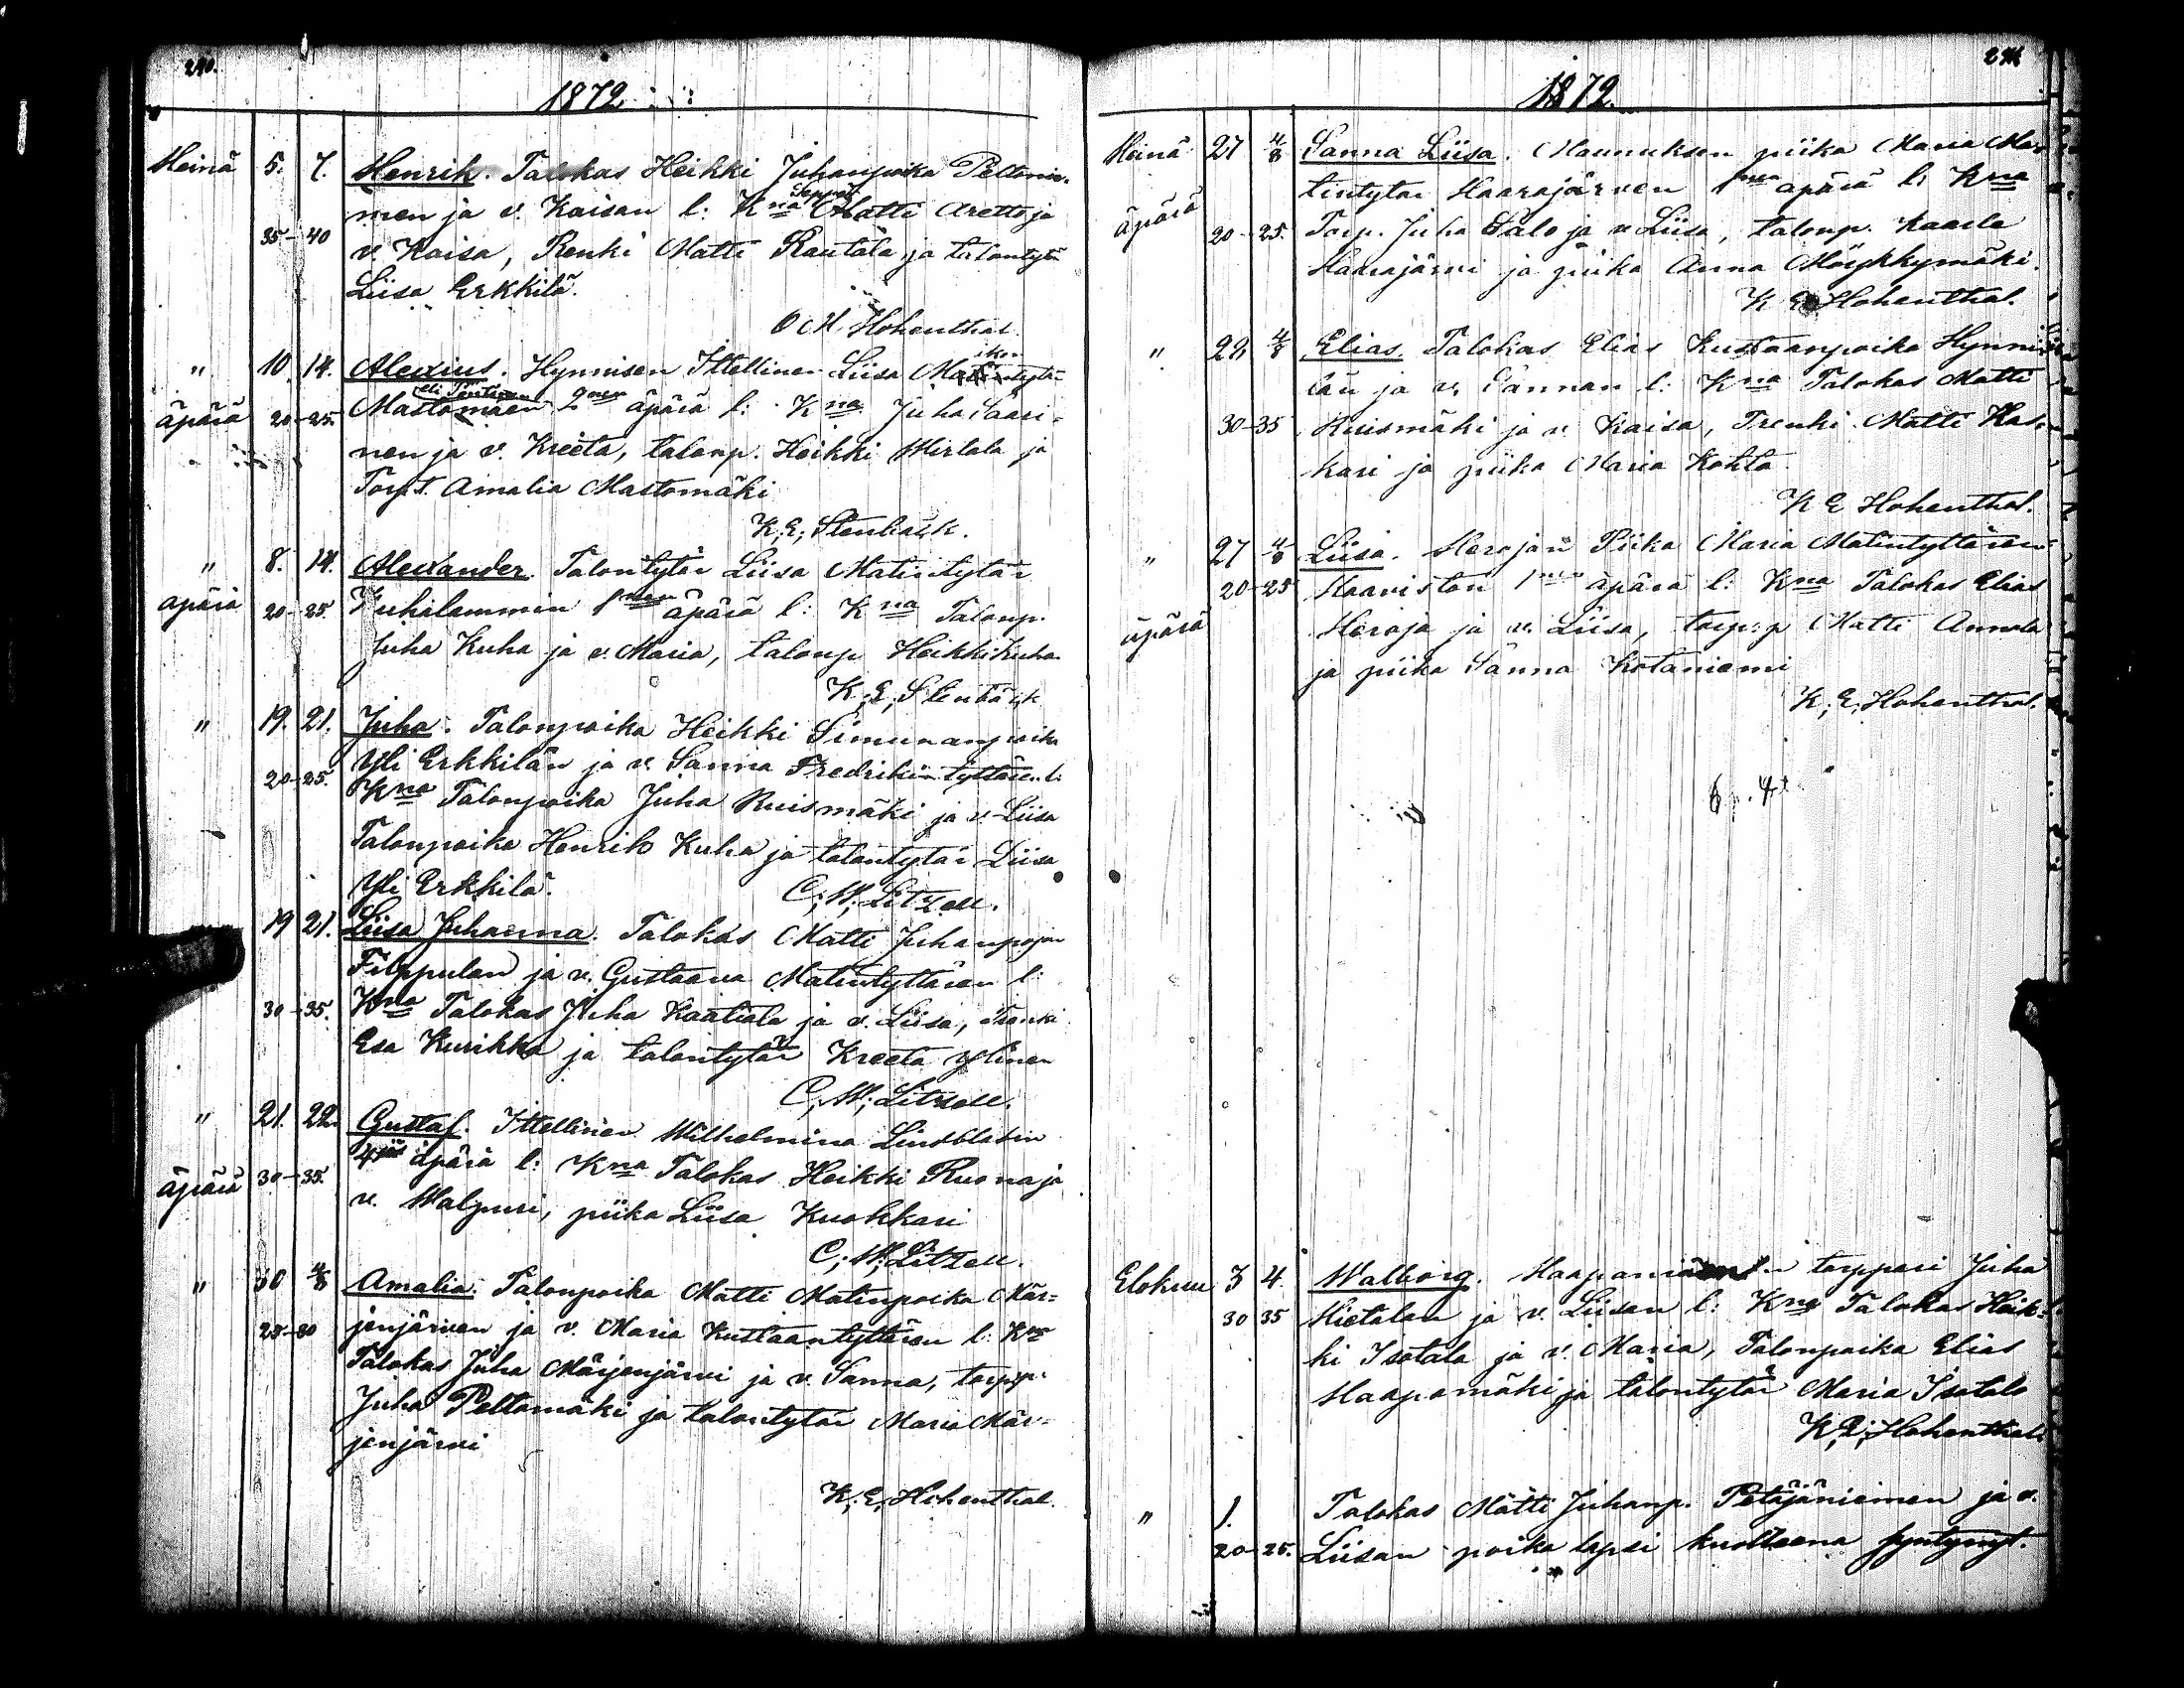 240.
1872.
Heinä 5. 7. Henrik. Talokas Heikki Juhanpoika Peltonie-
men ja v. Kaisan l: Kna Seppä Matti Aretto ja
35-40 v. Kaisa, Renki Matti Rautala ja talontytär
Liisa Erkkilä.
O M Hohenthal
" 10. 14. Alexius. Hynnisen Ittellinen Liisa
äpärä 20-25. Mastomäen 2nen äpärä l: Kna Juha Saari-
nen ja v. Kreeta, talonp. Heikki Wirtala ja
Torp.t. Amalia Mastomäki
K; E; Stenbäck.
" 8. 14. Alexander. Talontytär Liisa Matintytär
äpärä 20-25. Kuhilammin 1nen äpärä l: Kna Talonp.
Juha Kuha ja v. Maria, talonp Heikki Kuha
K; E; Stenbäck
" 19. 21. Juha. Talonpoika Heikki Simunanpoika
Yli Erkkilän ja v. Sanna Fredrikintyttären l:
20-25. Kna Talonpoika Juha Ruismäki ja v. Liisa
Talonpoika Henrik Kuha ja talontytär Liisa
Yli Erkkilä.
C; W; Litzell.
19 21. Liisa Juhanna. Talokas Matti Juhanpojan
Filppulan ja v. Gustaava Matintyttären l:
30-35. Kna Talokas Juha Kaatiala ja v. Liisa, Trenki
Esa Kurikka ja talontytär Kreeta Ylinen
C; W; Litzell.
" 21. 22. Gustaf. Ittellinen Wilhelmina Lindbladin
äpärä 30-35. 4jäs äpärä l: Kna Talokas Heikki Ruona ja
v. Walpuri, piika Liisa Kuokkari
C; W; Litzell.
" 30 4/8 Amalia. Talonpoika Matti Matinpoika Mär=
25-30 jenjärven ja v. Maria Kustaantyttären l: Kna
Talokas Juha Märjenjärvi ja v. Sanna, torpp.
Juha Peltomäki ja talontytär Maria Mär-
jenjärvi
K; E; Hohenthal.
241
1872.
Heinä 27 4/8 Sanna Liisa. Maunuksen piika Maria Mar
äpärä tintytär Haarajärven 1nen äpärä l: Kna
20-25. Torp. Juha Salo ja v Liisa, talonp. Kaarle
Haarajärvi ja piika Anna Möykkymäki.
K E Hohenthal.
" 29 4/8 Elias. Talokas Elias Kustaanpoika Hynni
län ja v. Sannan l: Kna Talokas Matti
30-35 Ruismäki ja v. Kaisa, Trenki Matti Kas-
kari ja piika Maria Kohta
K E Hohenthal.
" 27 4/8 Liisa. Herajan Piika Maria Matintyttären
20-25 Haaviston 1nen äpärä l: Kna Talokas Elias
äpärä Heraja ja v. Liisa, torp:p Matti Annala
ja piika Sanna Kotaniemi
K; E; Hohenthal.
Elokuu 3 4. Walborg. torppari Juha
30 35 Hietalan ja v. Liisan l: Kna Talokas Heik-
ki Isotalo ja v. Maria, Talonpoika Elias
Haapamäki ja talontytär Maria Isotalo
K; E; Hohenthal
" 1. Talokas Matti Juhanp. Petäjäniemen ja v.
20-25. Liisan poika lapsi kuolleena syntynyt.